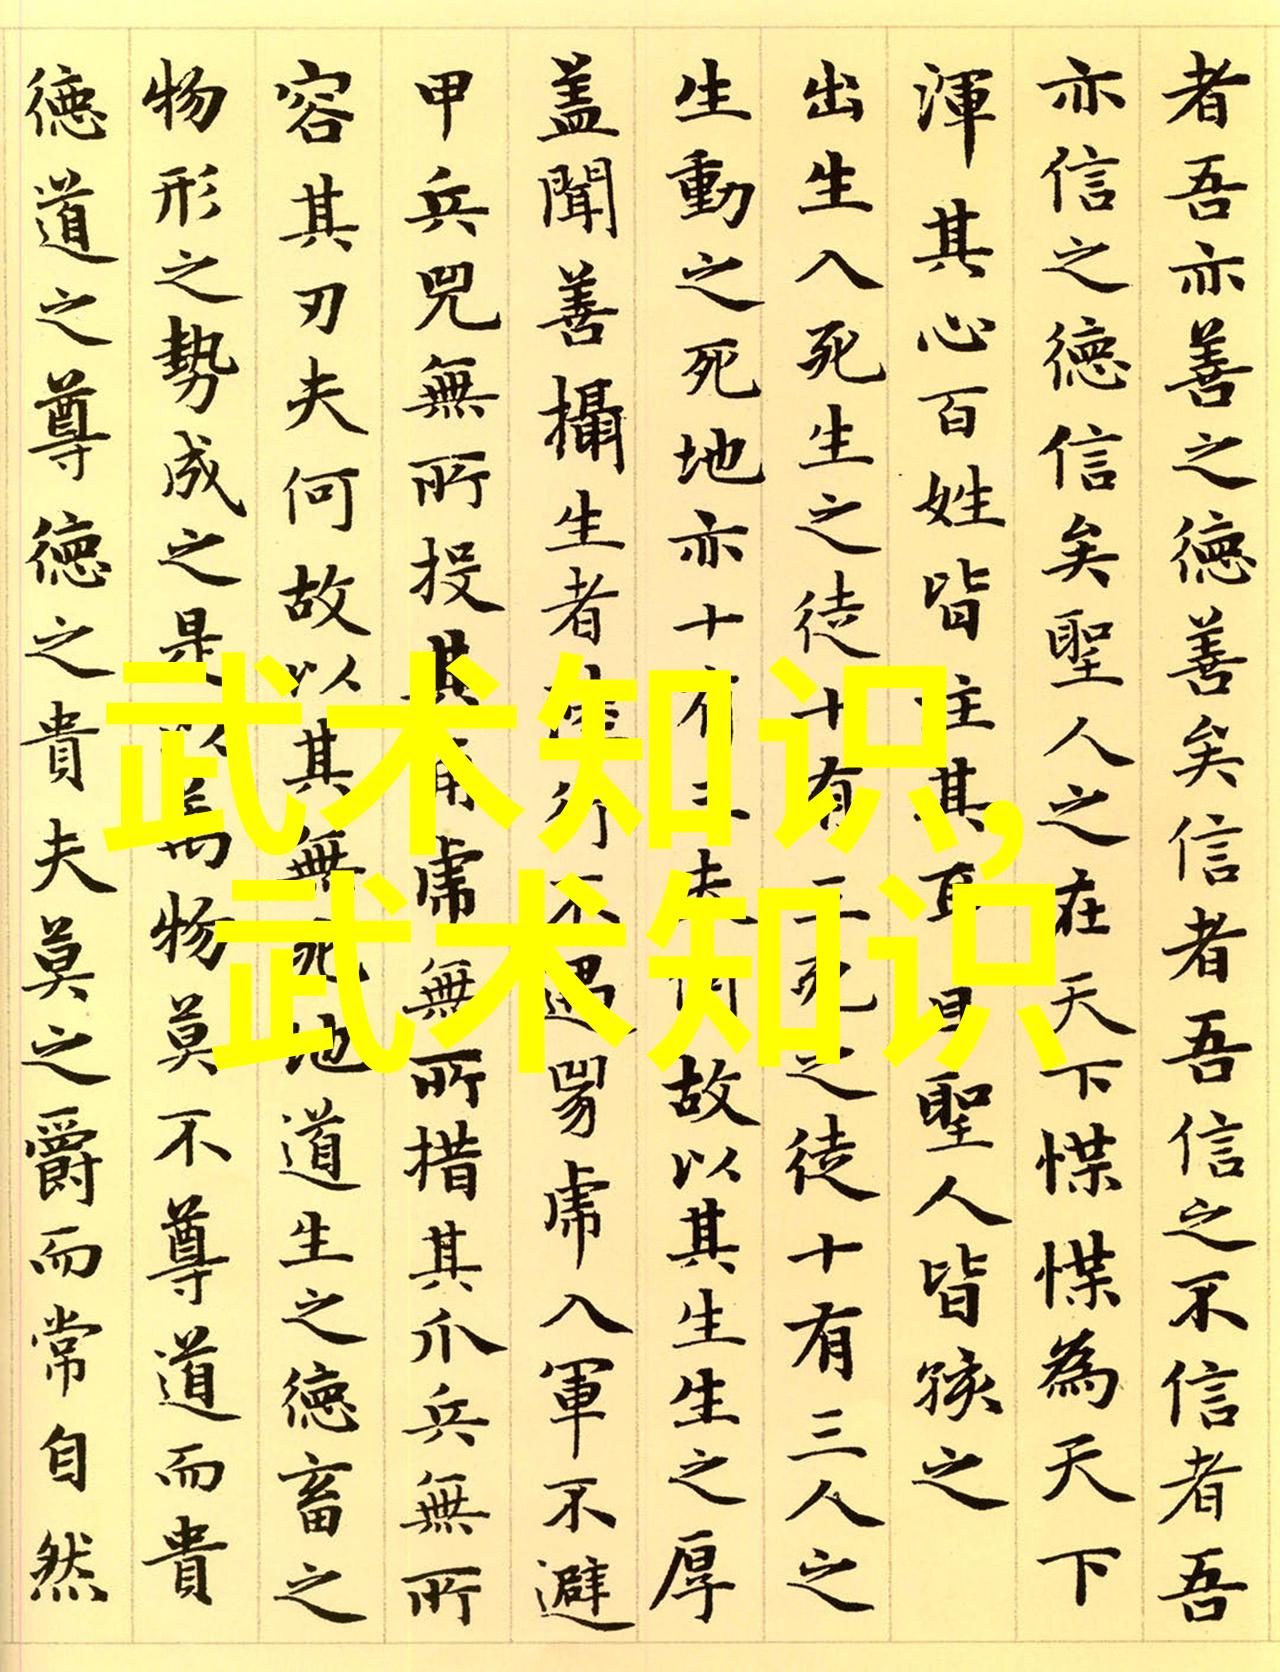 者吾亦善之德善矣信者吾信之不信者吾
亦信之德信矣聖人之在天下惵惵為天下
渾其心百姓皆注其耳目聖人皆孩之
出生入死生之徒十有三死之徒十有三人之
生動之死地亦十有三夫何故以其生生之厚
蓋聞善攝生者陸行不遇兕虎入軍不避
甲兵兕無所投其角虎無所措其爪兵無所
容其刃夫何故以其無死地道生之德畜之
物形之勢成之是以萬物莫不尊道而貴
德道之尊德之貴夫莫之爵而常自然
武术知识,
武术知识